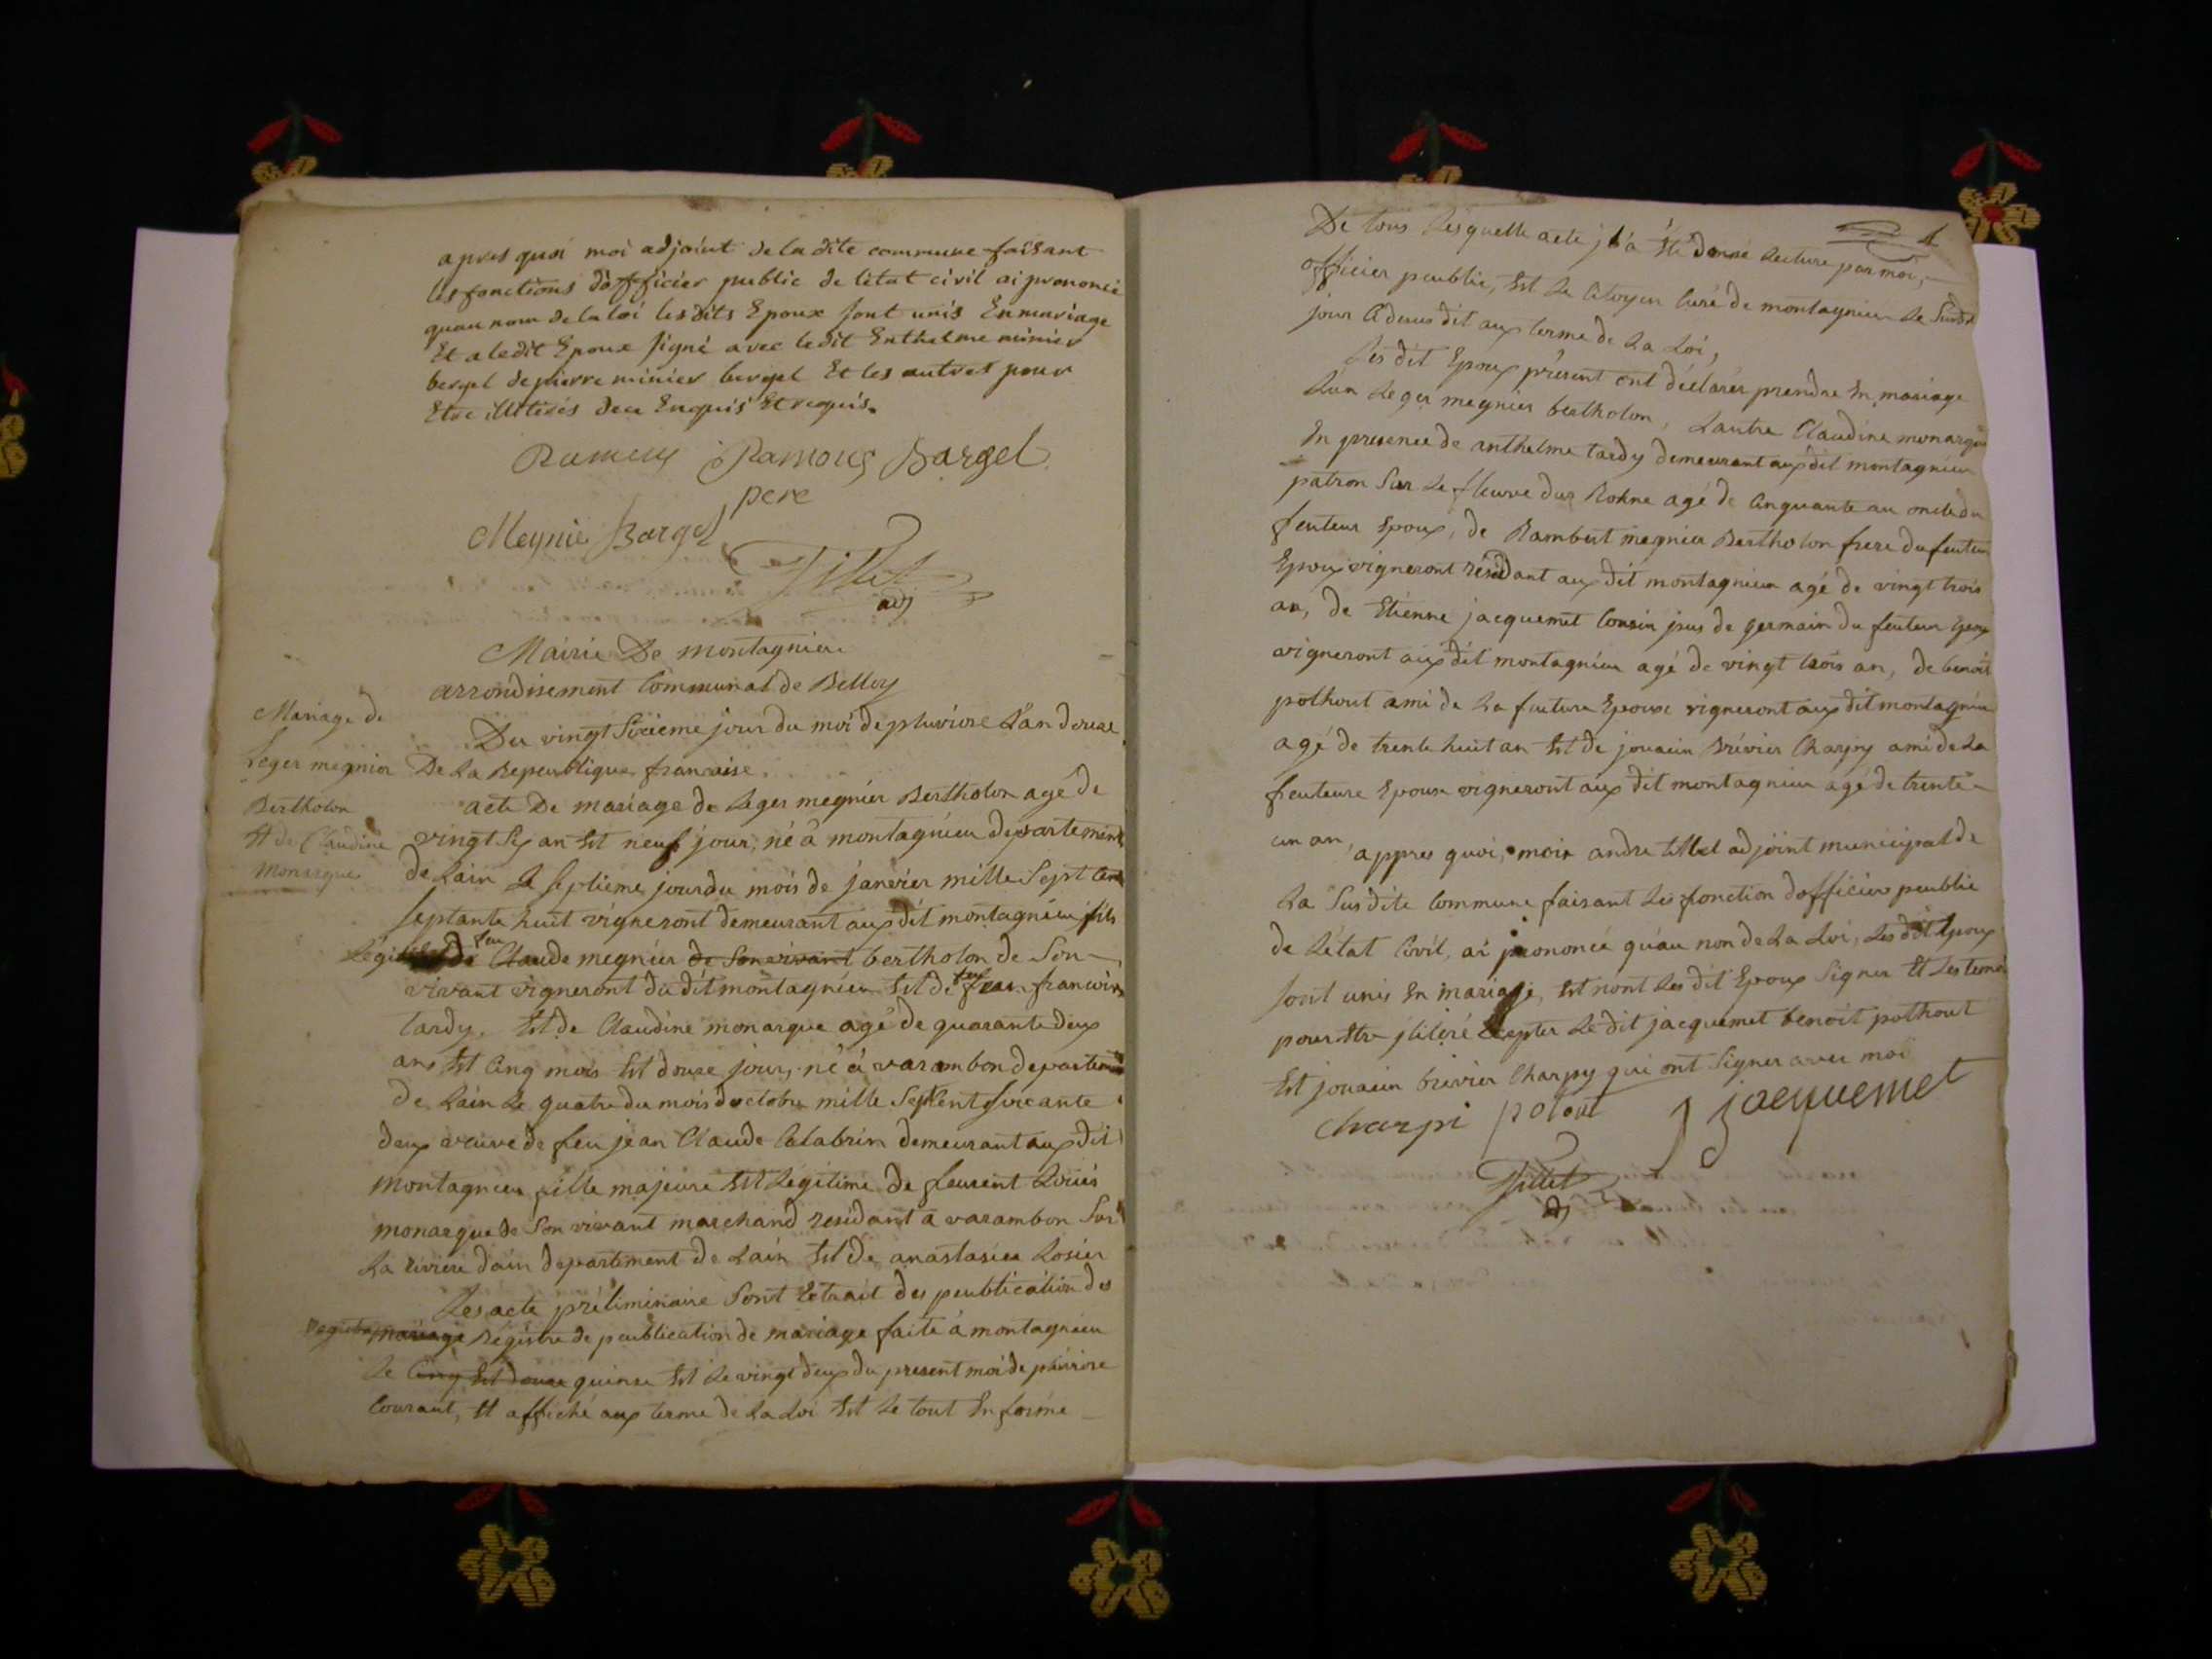 apres quoi moi adjoint de la dite commune faisant
les fonctions d'officier public de l'état civil ai prononcé
quau nom de la loi les dits Epoux sont unis En mariage
Et a ledit Epoux signé avec ledit Enthelme minier
bergel de pierre minier bergel Et les autres pour
Etre illiterés de ce Enquis Et requis.
Ramous Bargel
pere
Meynié Bargel
Tillet
adj
Mairie De montagnieu
arrondisement Communal de Belley
Mariage de
Leger megnier
Bertholon
Et de Claudine
monarque
Du vingt Sixieme jour du moi de pluviose L'an douze
De La Republique francaise.
acte De mariage de Leger megnier Bertholon agé de
vingt Six an Est neuf jour, né à montagnieu departement
de Lain Le septieme jour du mois de janvier mille Sept Cent
septante huit vigneront demeurant aux dit montagnieu fils
Légitime de feu Claude megnier de Son vivant bertholon de Son
vivant vigneront du dit montagnieu Est de feu francoise
tardy. Est de Claudine monarque agé de quarante deux
ans Est Cinq mois Est douze jours, né à varambon departement
de Lain Le quatre du mois doctobre mille Sept Cent soixante
deux veuve de feu jean Claude Calabrin demeurant aux dit
montagnieu fille majeure Est Légitime de fleurent Louis
monarque de Son vivant marchand residant à varambon Sur
La riviere d'ain departement de Lain Est de anastasiee Losier
Les acte préliminaire Sont Extrait des peublication des
Registre mariage Régistre de peublication de mariage faite à montagnieu
Le Cinq Est douze quinze Est Le vingt deux du present moi de pluviose
Courant, Et affiché aux terme de La Loi Est Le tout En forme
De tous Lesquelle acte jl à Eté donné Lecture par moi,
officier peublic, Est Le Citoyen Curé de montagnieu Le Susdit
jour Cideuus dit aux terme de La Loi,
Les dit Epoux présent ont déclarér prendre En mariage
Lun Leger megnier bertholon, Lautre Claudine monarque
En presence de anthelme tardy demeurant aux dit montagnieu
patron Sur Le fleuve dus Rohne agé de Cinquante an oncle du
feuteur Epoux, de Rambert megnier Bertholon frere du feuteur
Epoux vigneront résidant aux dit montagnieu agé de vingt trois
an, de Etienne jacquemet Cousin jsus de germain du feuteur Epoux
vigneront aux dit montagnieu agé de vingt trois an, de benoit
pothout ami de La fueture Epouse vigneront aux dit montagnieu
agé de trente huit an Est de jouacin brévier Charpy ami de La
feuteure Epouse vigneront aux dit montagnieu agé de trente
un an, appres quoi, moi andre tillet adjoint municipal de
La Susdite Commune faisant Les fonction dofficier peublic
de L'état Civil, ai prononcé qu'au non de La Loi, Les dit Epoux
sont unis En mariage, Est nont Les dit Epoux Signer Et Les temoi
pour Etre jlitéré Excepter Le dit jacquemet benoit pothout
Est jouacin brévier Charpy qui ont Signer avec moi
charpi potout jacquemet
Tillet
adj